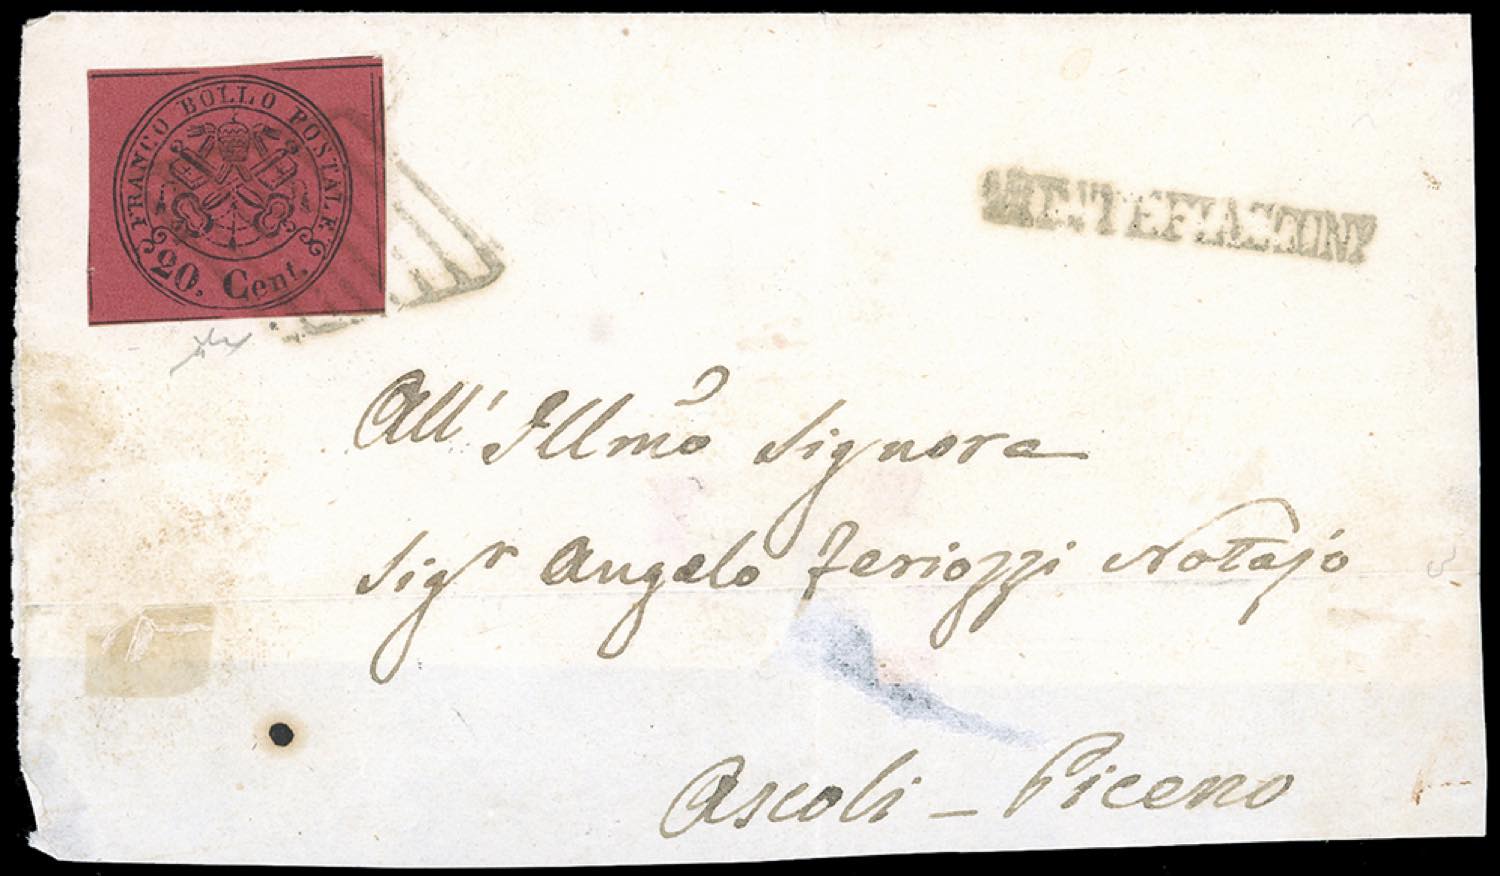 FRANCO BOLLO POSTALE
20. Cent.
All' Illmo Signore
Sigr Angelo Feriozzi Notajo
Ascoli - Piceno